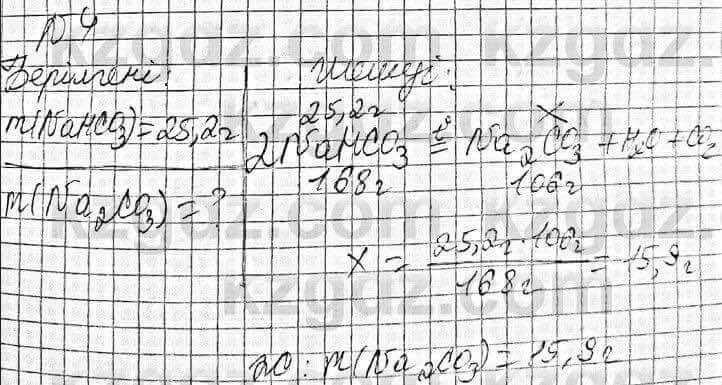 №4
Берілгені:
m(NaHCO₃)=25,2г
m(Na₂CO₃)=?
Шешуі:
25,2г x
2NaHCO₃ t°= Na₂CO₃ + H₂O + CO₂
168г 106г
x = 25,2г·106г / 168г = 15,9г
жб: m(Na₂CO₃)=15,9г
kzgdz.com